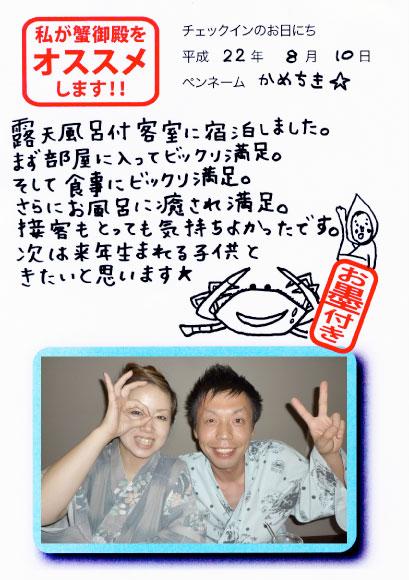 私が蟹御殿を
オススメ
します!!
チェックインのお日にち
平成 22年 8月 10日
ペンネーム かめちき☆
露天風呂付客室に宿泊しました。
まず部屋に入ってビックリ満足。
そして食事にビックリ満足。
さらにお風呂に癒され満足。
接客もとっても気持ちよかったです。
次は来年生まれる子供と
きたいと思います★
お墨付き